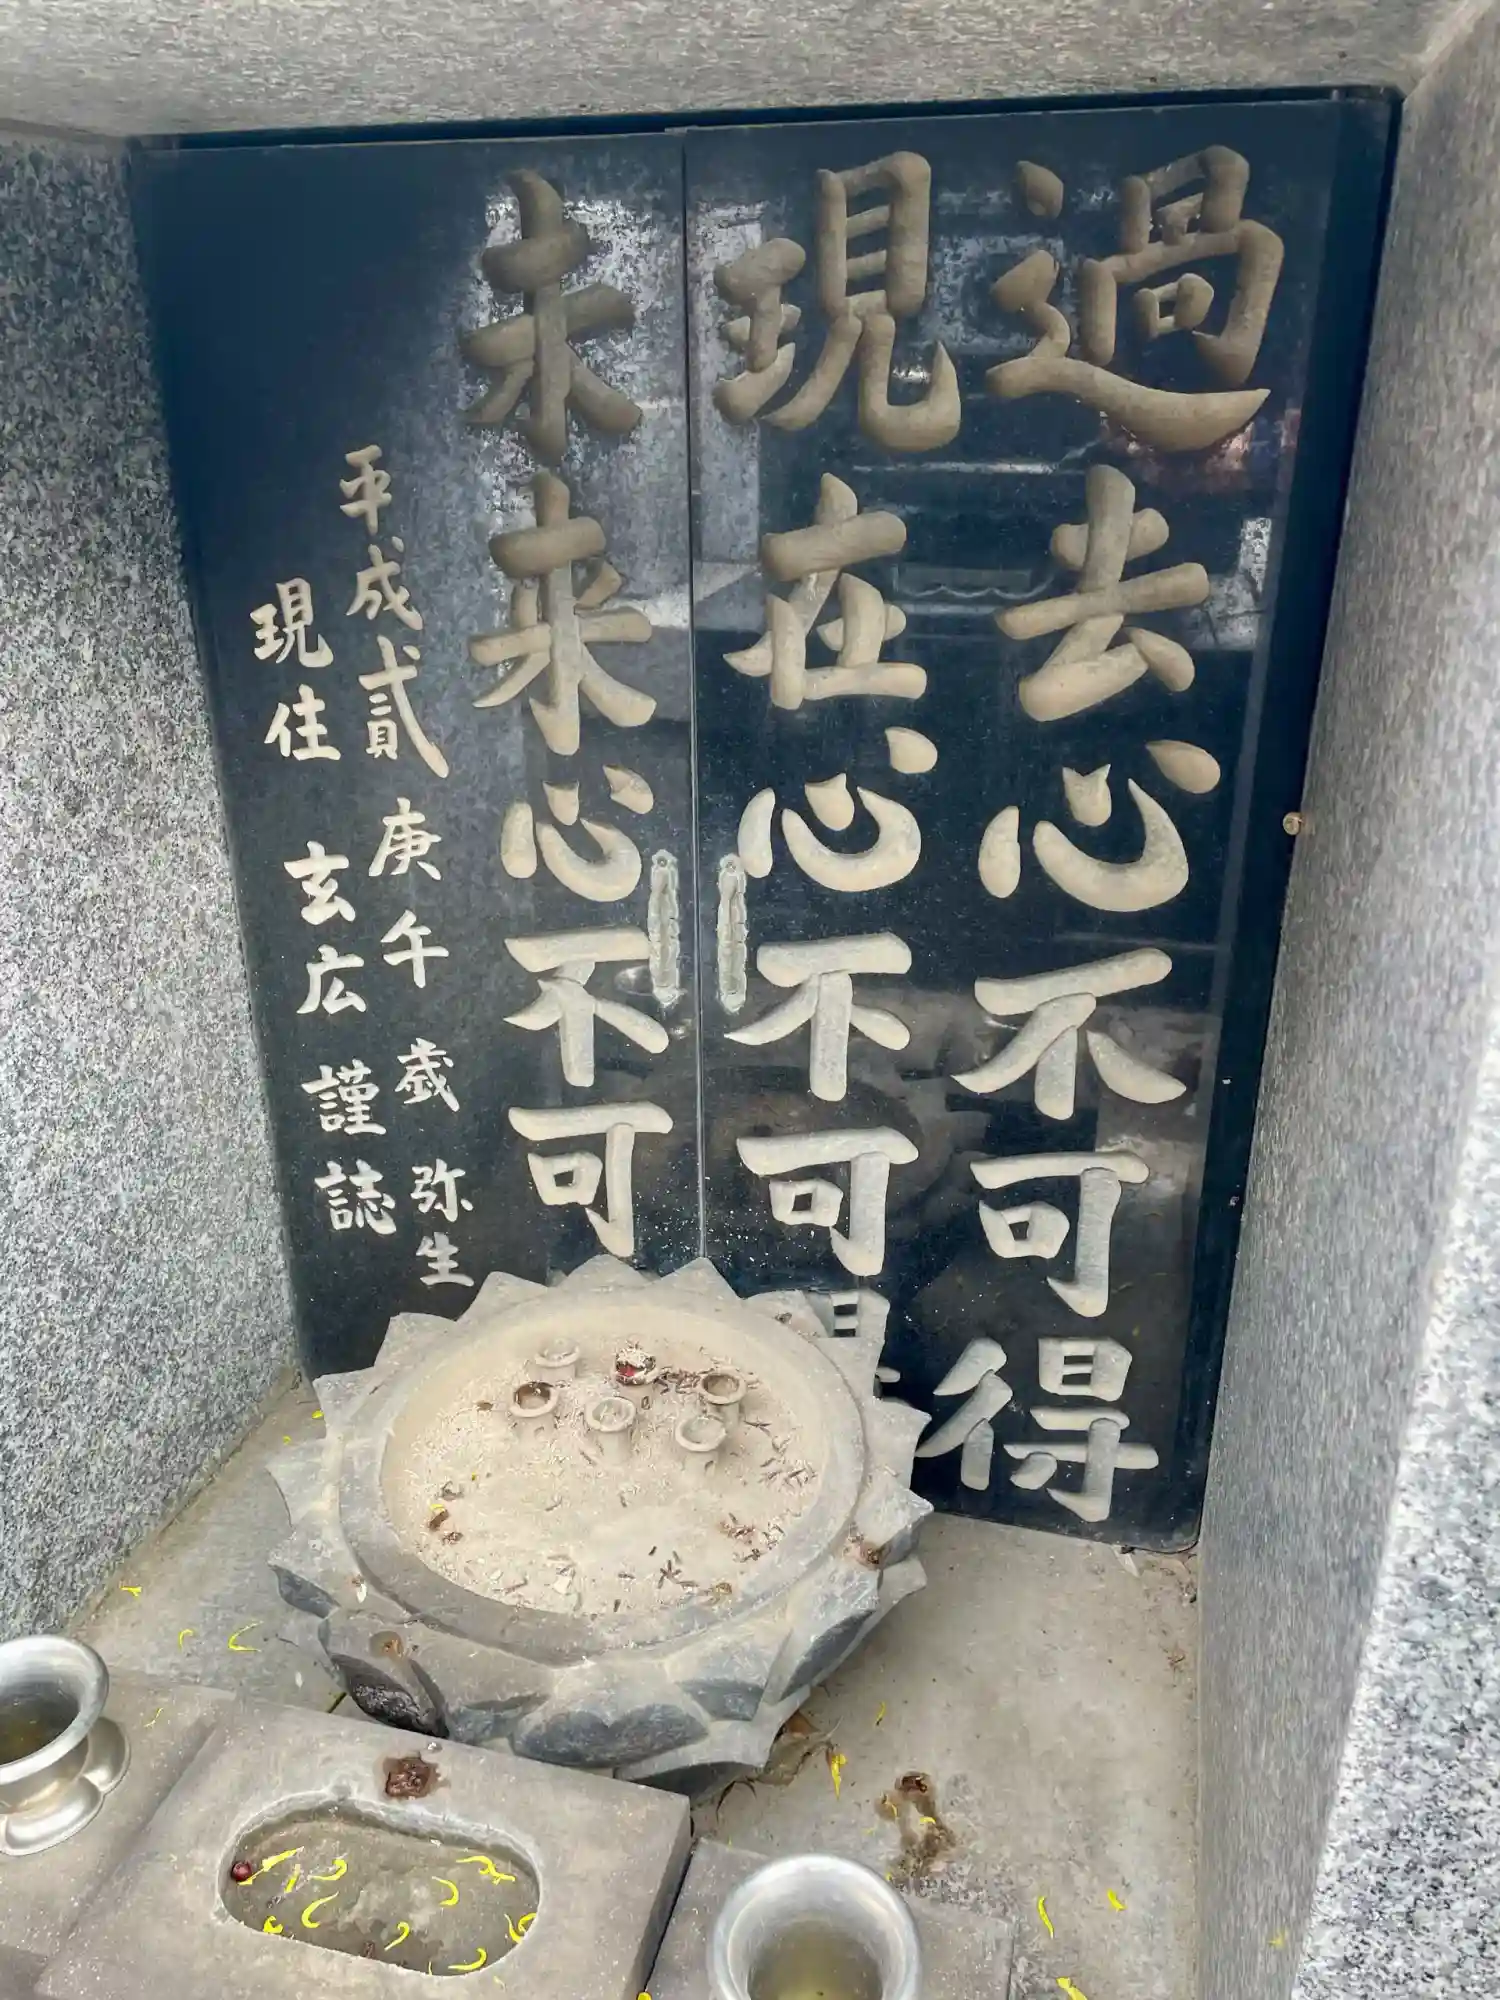 過去心不可得
現在心不可得
未来心不可
平成貳庚午歳弥生
現住 玄広 謹誌